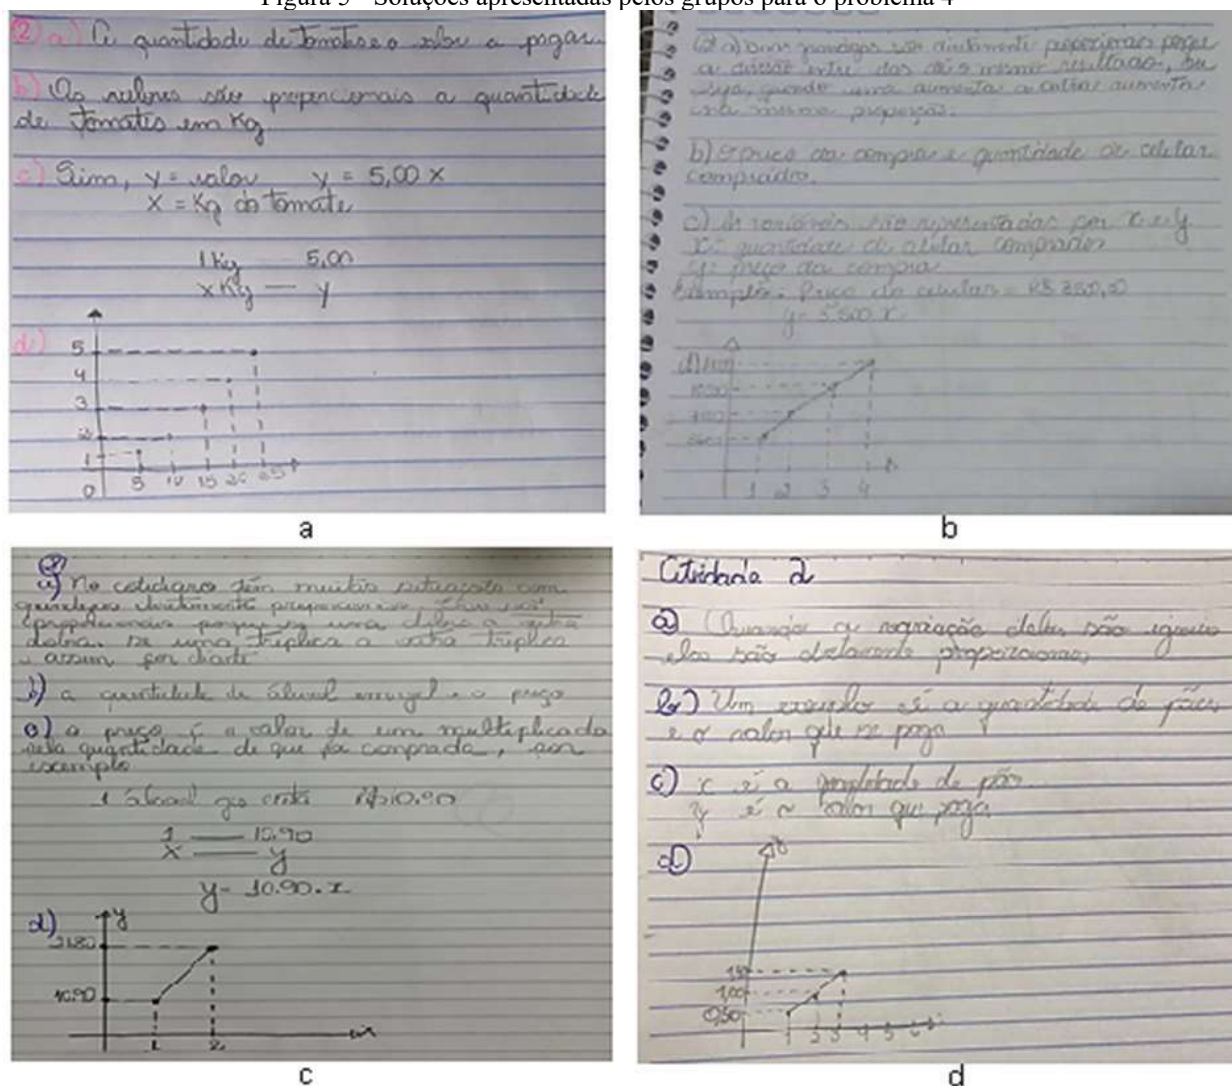 Figura 5 - Soluções apresentadas pelos grupos para o problema 4
2) a) A quantidade de tomates e o valor a pagar.
b) Os valores são proporcionais a quantidade
de tomates em Kg
c) Sim, y = valor y = 5,00 x
x = Kg do tomate
1 Kg — 5,00
x Kg — y
d)
5
4
3
2
1
0 5 10 15 20 25
a
a) duas grandezas são diretamente proporcionais porque
a divisão entre das o mesmo resultado, ou
seja, quando uma aumenta a outra aumenta
na mesma proporção.
b) O preço da compra e quantidade de celular
comprados.
c) As variáveis são representadas por x e y
x: quantidade de celular comprados
y: preço da compra
Exemplo: Preço do celular = R$
d)
1 2 3 4
b
a) No cotidiano têm muitas situações com
grandezas diretamente proporcionais.
proporcionais porque se uma dobra a outra
dobra, se uma triplica a outra triplica
e assim por diante
b) a quantidade de e o preço
c) o preço é o valor de um multiplicado
pela quantidade de que foi comprada, por
exemplo
1 custa R$10.90
1 — 10.90
x — y
y = 10.90 . x
d) y
21.80
10.90
1 2 x
c
Atividade 2
a) Quando a variação delas são iguais
elas são diretamente proporcionais
b) Um exemplo é a quantidade de pães
e o valor que se paga
c) x é a quantidade de pão
y é o valor que paga
d)
1,50
1,00
0,50
1 2 3 4 5 6
d